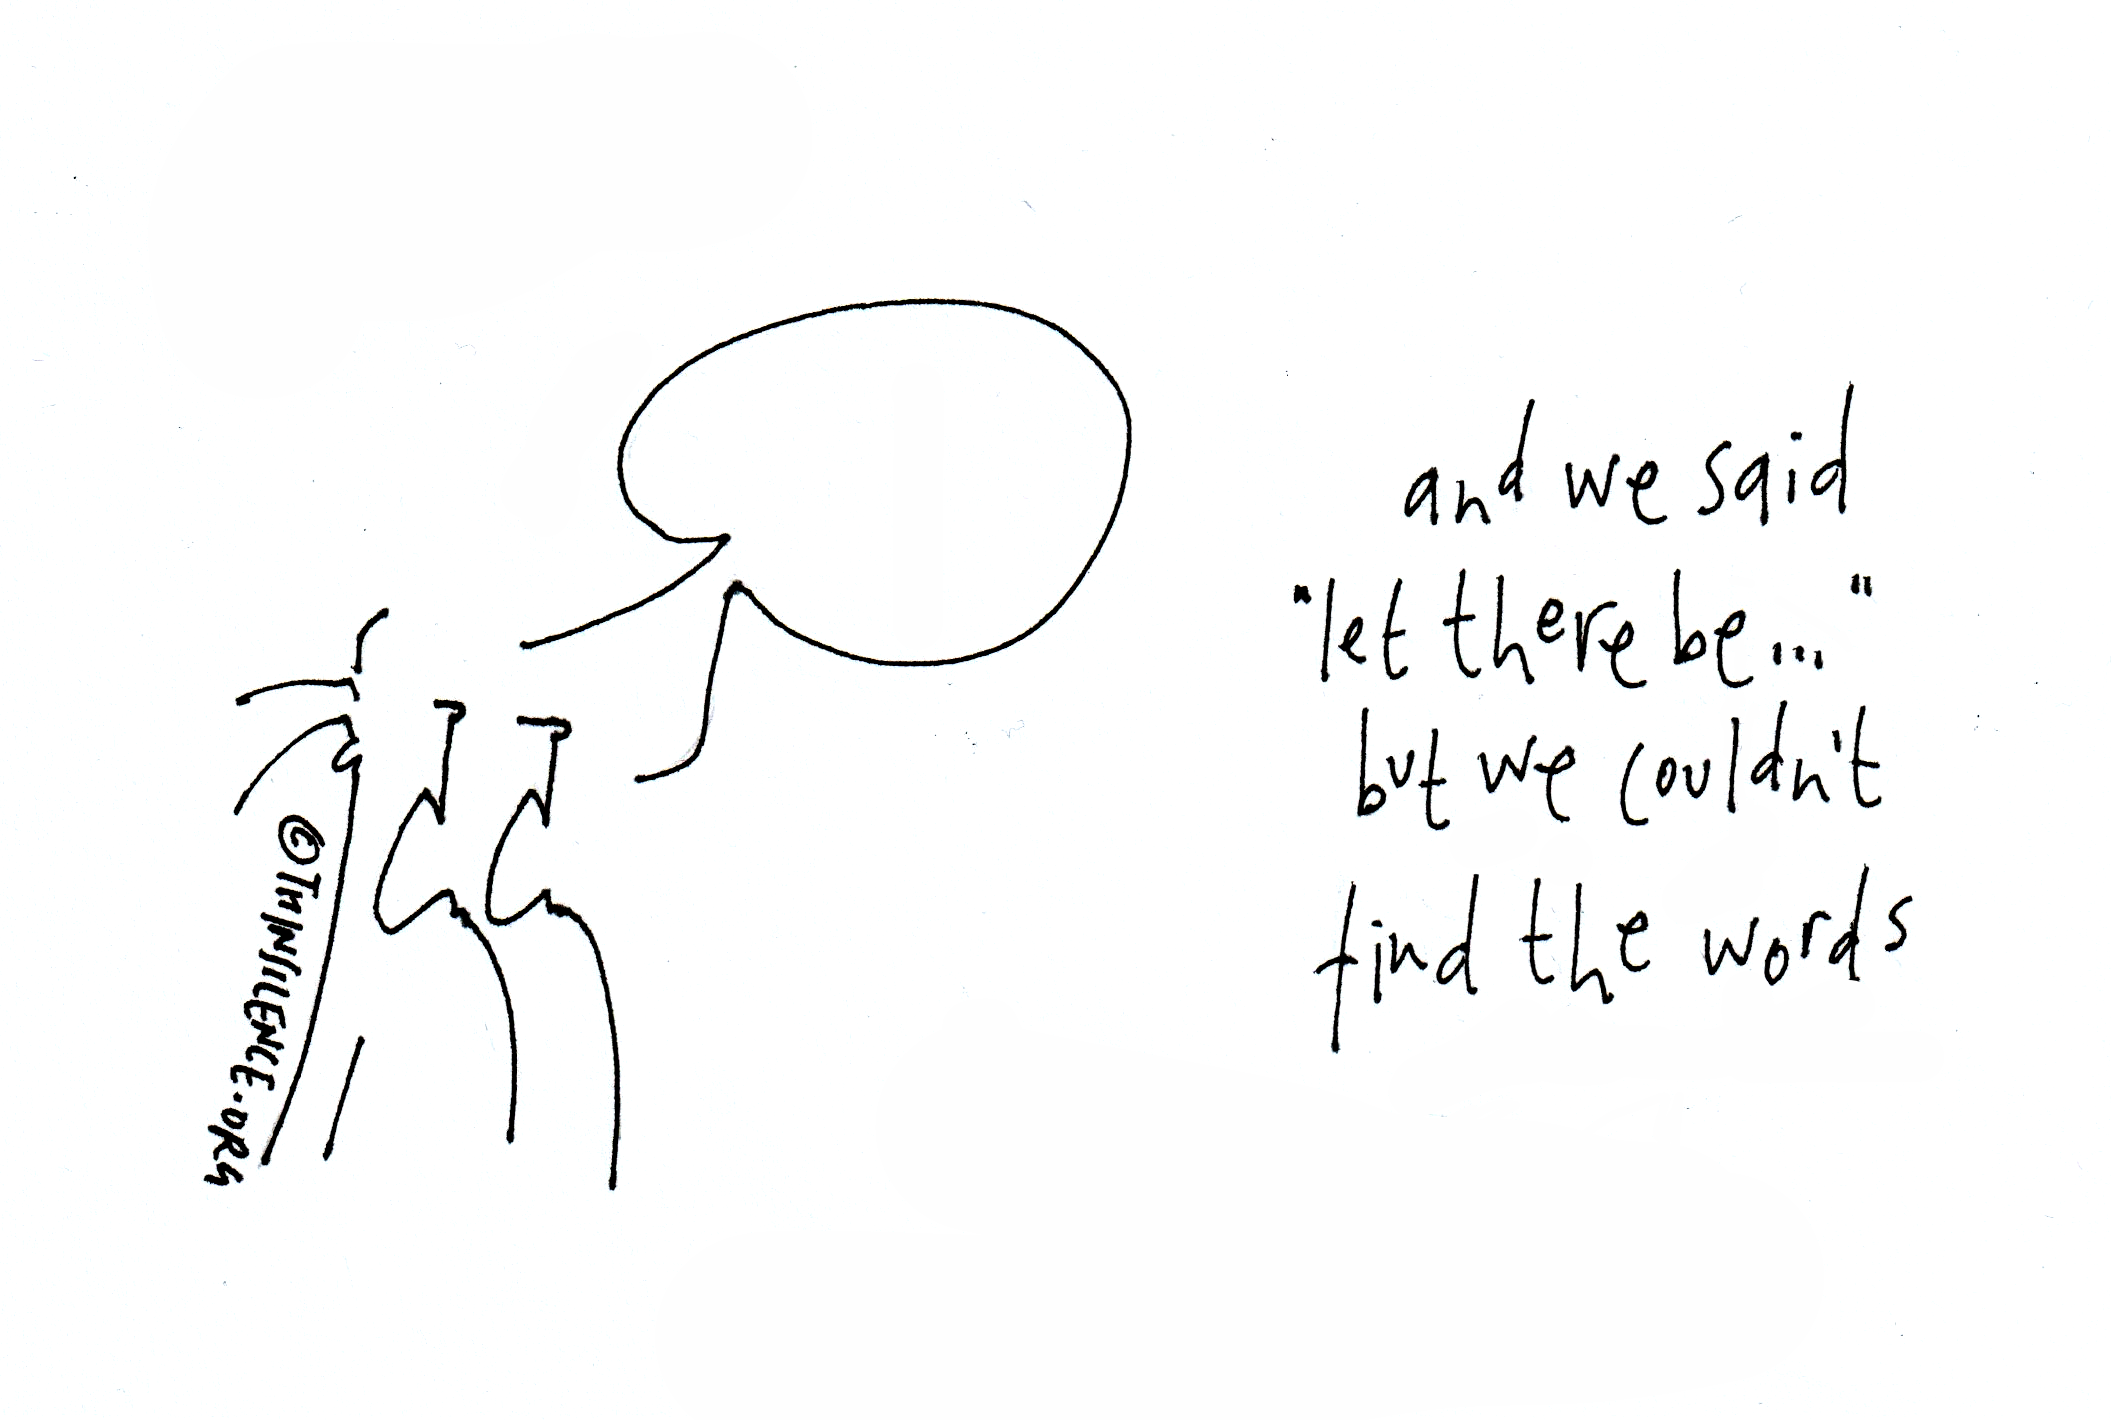 and we said
"let there be..."
but we couldn't
find the words
©THINSILENCE.ORG